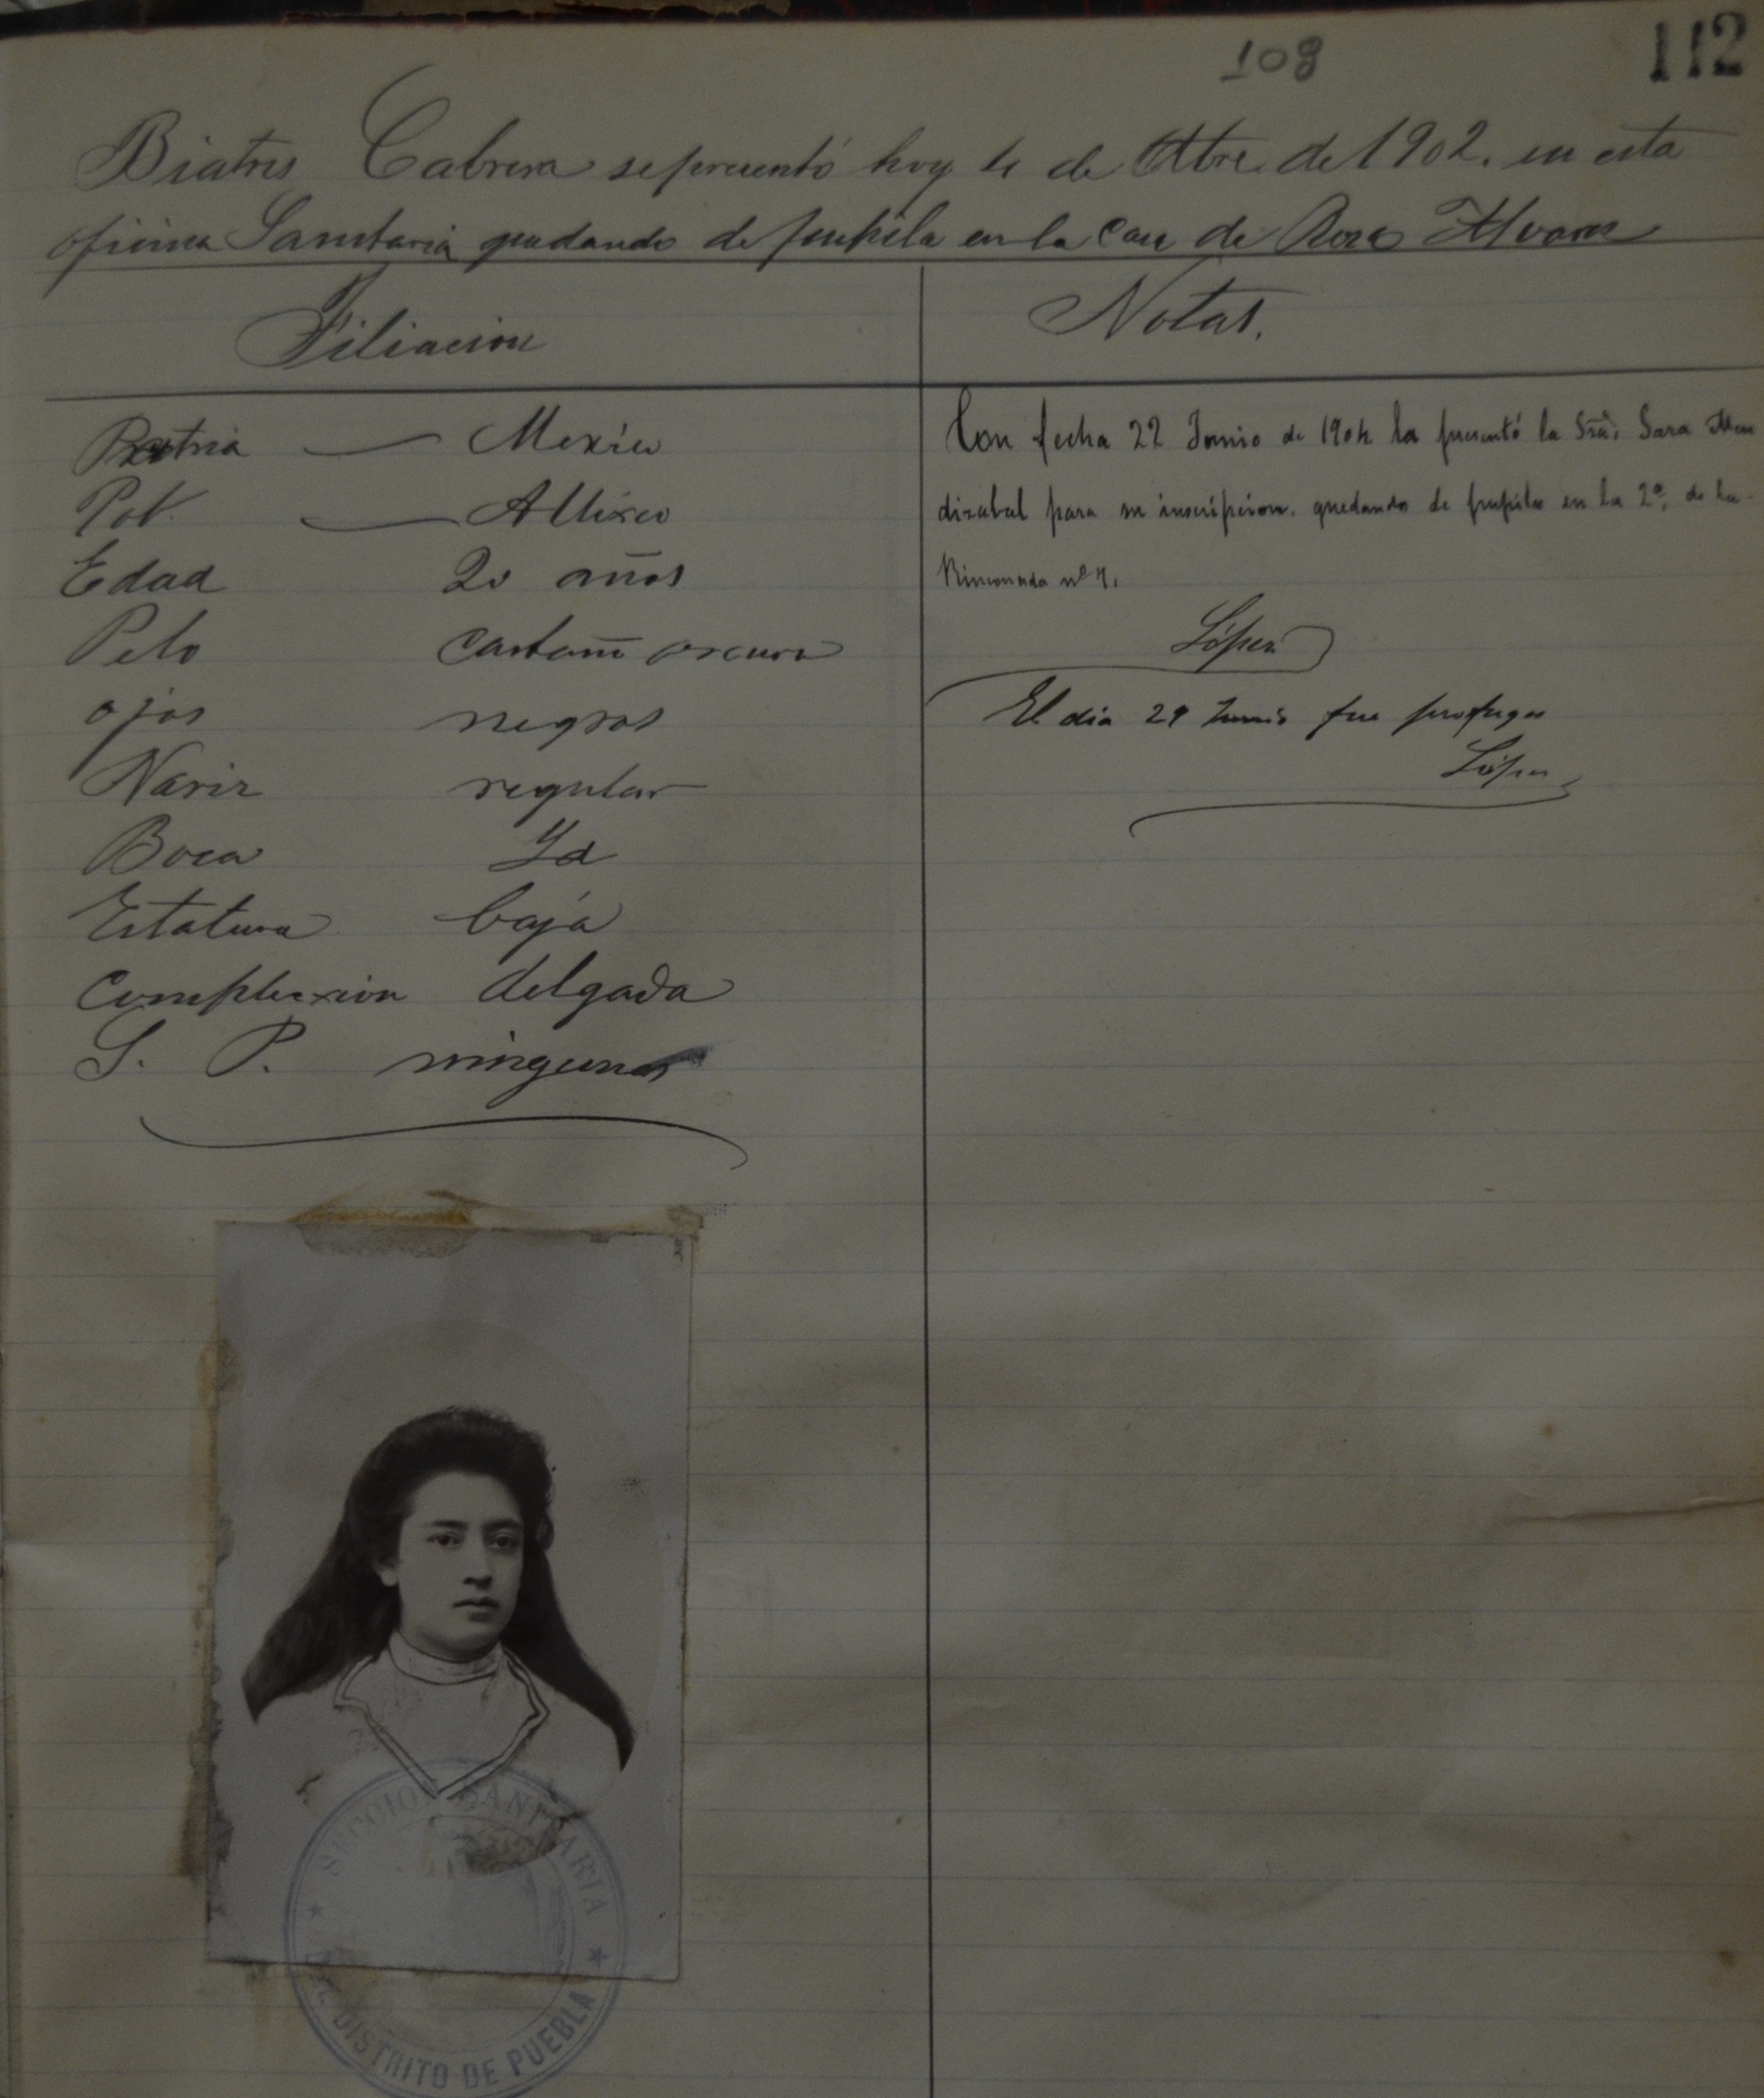 108
112
Biatris Cabrera se presentó hoy 4 de Otbre. de 1902. en esta
oficina Sanitaria quedando de pupila en la casa de Rosa Alvares
Filiacion
Notas.
Patria — Mexico
Pob. — Atlixco
Edad 20 años
Pelo castaño oscuro
ojos negros
Nariz regular
Boca Id
Estatura baja
Complexion delgada
S. P. ningunas
Con fecha 22 Junio de 1904 la presentó la Sra. Sara Men
dizabal para su inscripcion. quedando de pupila en la 2a. de la
Rinconada no
López
El dia 29 Junio fue profuga
López
SECCION SANITARIA
DISTRITO DE PUEBLA